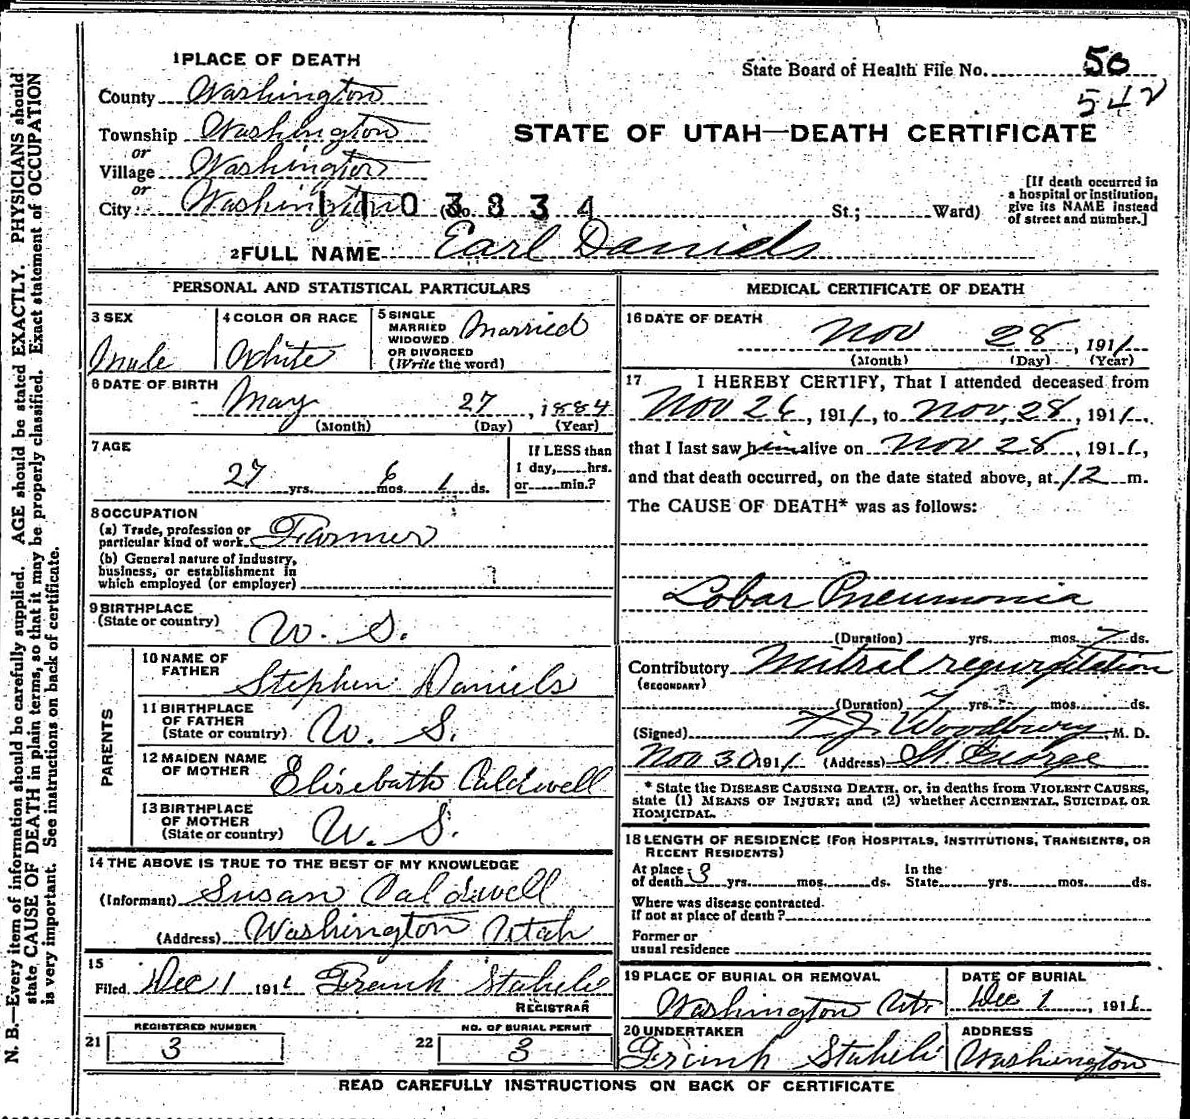 N. B.—Every item of information should be carefully supplied. AGE should be stated EXACTLY. PHYSICIANS should
state CAUSE OF DEATH in plain terms, so that it may be properly classified. Exact statement of OCCUPATION
is very important. See instructions on back of certificate.
1 PLACE OF DEATH
State Board of Health File No. 50
542
County Washington
Township Washington
or
Village Washington
or
City Washington
1103334
(No. St.; Ward)
STATE OF UTAH—DEATH CERTIFICATE
[If death occurred in
a hospital or institution,
give its NAME instead
of street and number.]
2 FULL NAME Earl Daniels
PERSONAL AND STATISTICAL PARTICULARS
3 SEX
Male
4 COLOR OR RACE
White
5 SINGLE
MARRIED
WIDOWED
OR DIVORCED
(Write the word)
Married
6 DATE OF BIRTH
May 27, 1884
(Month) (Day) (Year)
7 AGE
27 yrs. 6 mos. 1 ds.
If LESS than
1 day, hrs.
or min.?
8 OCCUPATION
(a) Trade, profession or
particular kind of work Farmer
(b) General nature of industry,
business, or establishment in
which employed (or employer)
9 BIRTHPLACE
(State or country)
U. S.
PARENTS
10 NAME OF
FATHER
Stephen Daniels
11 BIRTHPLACE
OF FATHER
(State or country) U. S.
12 MAIDEN NAME
OF MOTHER Elisebath Caldwell
13 BIRTHPLACE
OF MOTHER
(State or country) U. S.
14 THE ABOVE IS TRUE TO THE BEST OF MY KNOWLEDGE
(Informant) Susan Caldwell
(Address) Washington Utah
15
Filed Dec 1 1911 Frank Staheli
REGISTRAR
REGISTERED NUMBER
21 3
NO. OF BURIAL PERMIT
22 3
MEDICAL CERTIFICATE OF DEATH
16 DATE OF DEATH
Nov 28, 1911
(Month) (Day) (Year)
17 I HEREBY CERTIFY, That I attended deceased from
Nov 26, 1911, to Nov. 28, 1911,
that I last saw him alive on Nov 28, 1911,
and that death occurred, on the date stated above, at 12 m.
The CAUSE OF DEATH* was as follows:
Lobar Pneumonia
(Duration) yrs. mos. 7 ds.
Contributory Mitral regurgitation
(SECONDARY)
(Duration) 7 yrs. mos. ds.
(Signed) F. J. Woodbury, M. D.
Nov 30 1911 (Address) St. George
* State the DISEASE CAUSING DEATH, or, in deaths from VIOLENT CAUSES,
state (1) MEANS OF INJURY; and (2) whether ACCIDENTAL, SUICIDAL OR
HOMICIDAL.
18 LENGTH OF RESIDENCE (FOR HOSPITALS, INSTITUTIONS, TRANSIENTS, OR
RECENT RESIDENTS)
At place
of death 3 yrs. mos. ds.
In the
State yrs. mos. ds.
Where was disease contracted
If not at place of death?
Former or
usual residence
19 PLACE OF BURIAL OR REMOVAL
Washington Ut.
DATE OF BURIAL
Dec 1, 1911
20 UNDERTAKER
Frank Staheli
ADDRESS
Washington
READ CAREFULLY INSTRUCTIONS ON BACK OF CERTIFICATE